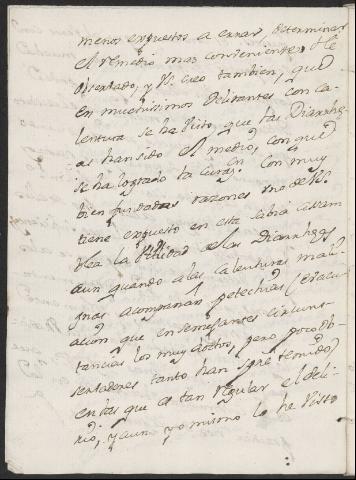 menos expuestos a errar, determinar
el remedio mas conveniente. He
observado, y Vs. creo tambien, que
en muchissimos delirantes con ca-
lentura se ha visto, que las Diarrhe-
as han sido el medio, con que
se ha logrado la curaⁿ. Con muy
bien fundadas razones uno de Vs.
tiene expuesto en esta sabia assam
blea la utilidad de las Diarrheas
aun quando a las calenturas mali-
gnas acompañan petechias (evacu-
acion que en semejantes circuns-
tancias los muy doctos, pero poco ob-
servadores tanto han sp̃re temido)
en las que es tan regular el deli-
rio, y aun yo mismo lo he visto